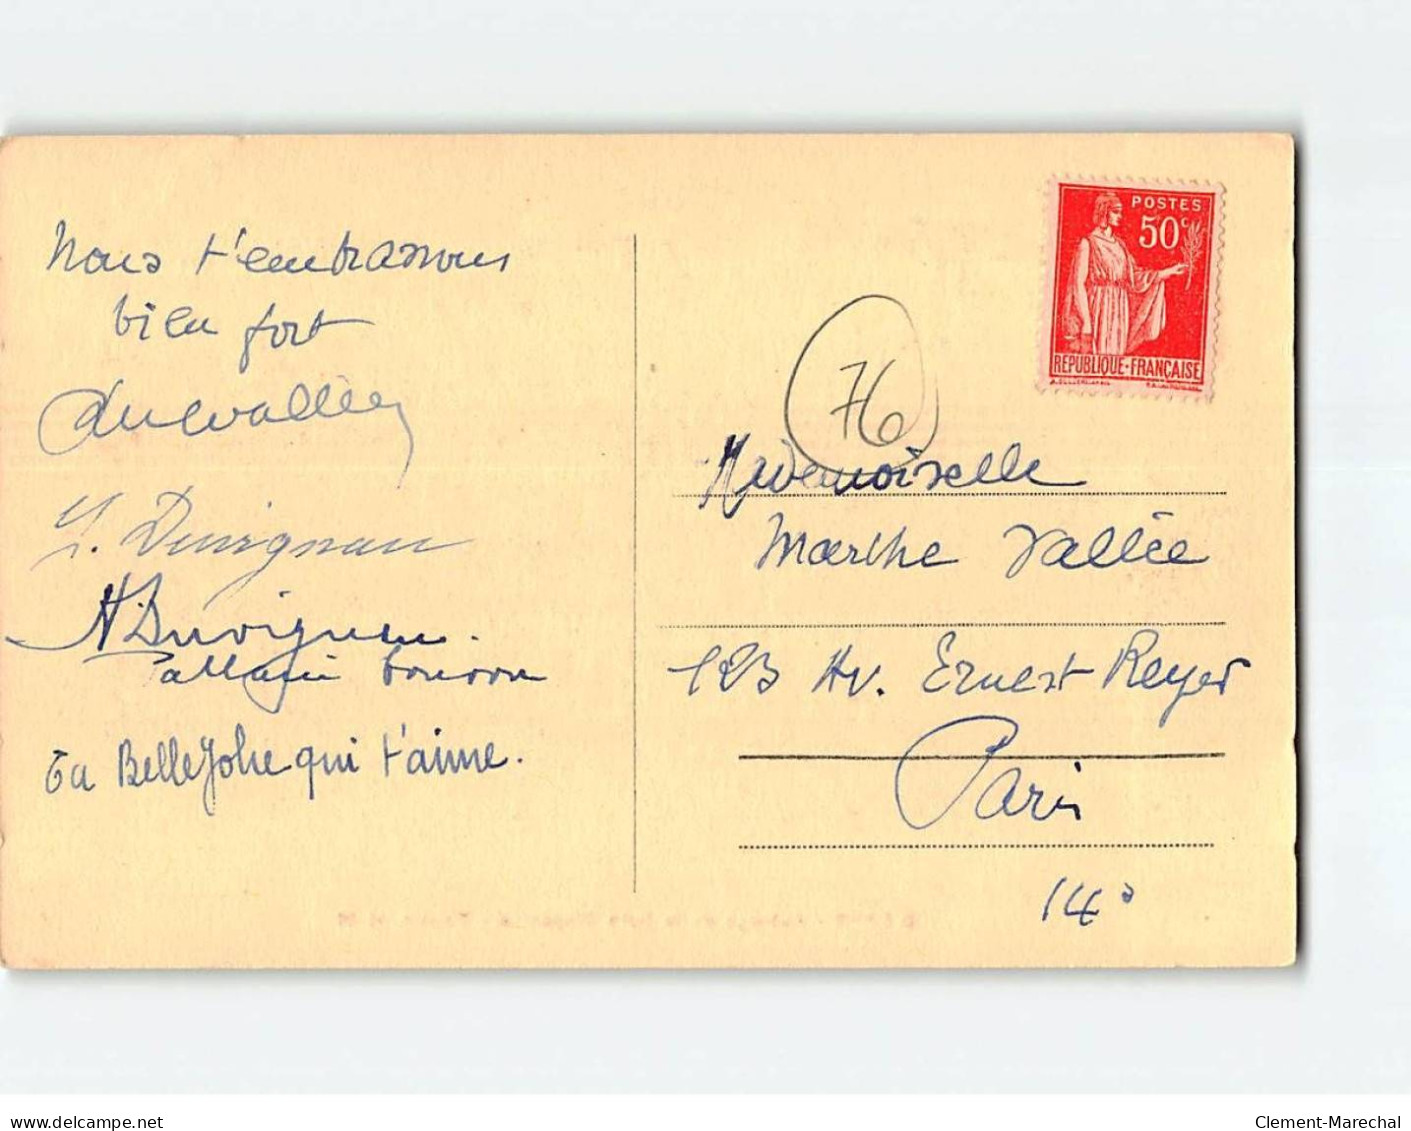 Nous t'embrassons
bien fort
Y. Duvignau
A. Duvignau.
Ta Belle Jolie qui t'aime.
POSTES
50c
REPUBLIQUE-FRANÇAISE
76
Mademoiselle
Marthe Vallée
123 Av. Ernest Reyer
Paris
14e
www.delcampe.net
Clement-Marechal